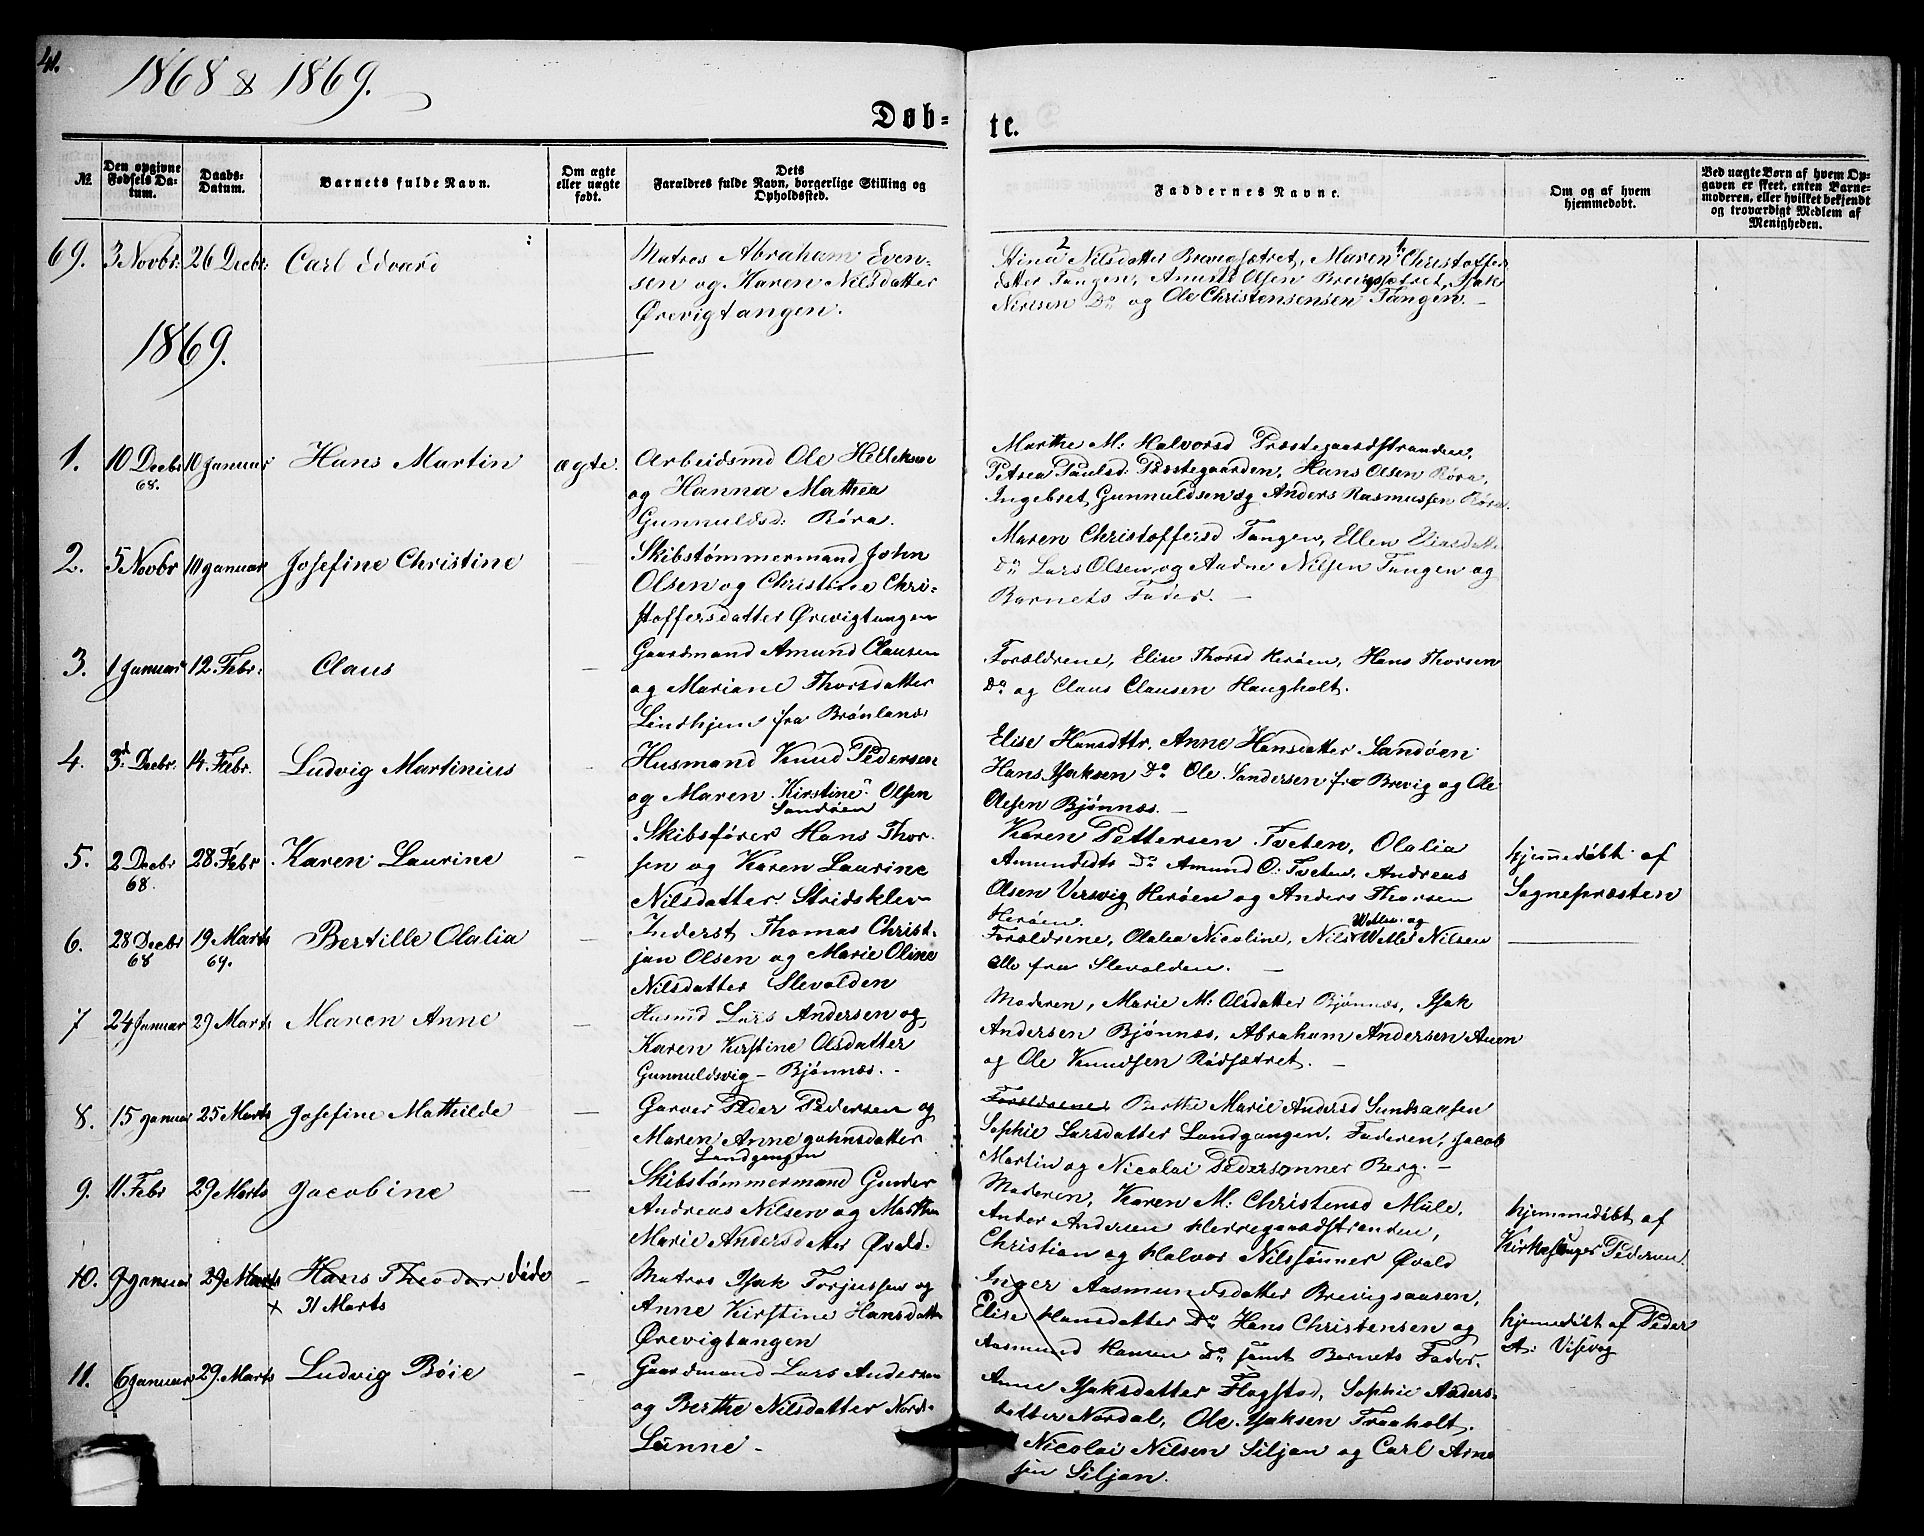 41.
1868 & 1869.
Døb-
te.
№
Den opgivne Fødsels Da-tum.
Daabs-Datum.
Barnets fulde Navn.
Om ægte eller uægte født.
Dets Forældres fulde Navn, borgerlige Stilling og Opholdssted.
Faddernes Navne.
Om og af hvem hjemmedøbt.
Ved uægte Børn af hvem Op-gaven er skeet, enten Barne-moderen, eller hvilket bekjendt og troværdigt Medlem af Menigheden.
69. 3 Novbr: 26 Decbr: Carl Edvard
Matros Abraham Even-
sen og Karen Nilsdatter
Ørevigtangen.
Stina Nilsdatter Brevigsætret, Maren Christoffers
datter Tangen, Amund Olsen Brevigsætret, Isak
Nielsen Do og Ole Christensensen Tangen. —
1869.
1. 10 Decbr 68. 10 Januar Hans Martin ægte.
Arbeidsmd Ole Helleksen
og Hanna Mathea
Gunnuldsd: Røra.
Marthe M: Halvorsd Præstegaardstranden,
Petrea Paulsd: Præstegaarden, Hans Olsen Røra,
Ingebret Gunnuldsen og Anders Rasmussen Røra.
2. 5 Novbr 10 Januar Josefine Christine
Skibstømmermand John
Olsen og Christine Chri-
stoffersdatter Ørevigtangen
Maren Christoffersd Tangen, Ellen
Do Lars Olsen og Audne Nilsen Tangen og
Barnets Fader. —
3. 1 Januar 12. Febr: Claus —
Gaardmand Amund Clausen
og Mariane Thorsdatter
Lindhjem fra Brønlanes
Forældrene, Elise Thorsd Herøen, Hans Thorsen
Do og Claus Clausen Haugholt.
4. 3d Decbr. 14. Febr. Ludvig Martinius —
Husmand Knud Pedersen
og Maren Kirstine Olsen
Sandøen
Elise Hansdttr, Anne Hansdatter Sandøen
Hans Isaksen Do Ole Sandersen fra Brevig og Ole
Olesen Bjønnæs. —
5. 2 Decbr 68. 28 Febr Karen Laurine —
Skibsfører Hans Thor-
sen og Karen Laurine
Nilsdatter Stridsklev
Karen Pettersen Tveten, Olalia
Amundsdtr Do Amund O: Tveten, Andreas
Olsen Versvig Herøen og Anders Thorsen
Herøen.
hjemmedøbt af
Sognepræsten
6. 28 Decbr 68 19 Marts 69. Bertille Olalia —
Inderst Thomas Christ-
jan Olsen og Marie Oline
Nilsdatter Slevolden
Wetle og
Forældrene, Olalia Nicoline, Nils Wetle Nilsen
alle fra Slevolden. —
7 24 Januar 29 Marts Maren Anne —
Husmd Lars Andersen og
Karen Kirstine Olsdatter
Gunnuldsvig – Bjønnæs. –
Moderen, Marie M: Olsdatter Bjønnæs, Isak
Andersen Bjønnæs, Abraham Andersen Auen
og Ole Knudsen Rødsætret. —
8. 15 Januar 25 Marts Josefine Mathilde —
Garver Peder Pedersen og
Maren Anne Johnsdatter
Landgangen
Forældrene Berthe Marie Andersd Sundsaasen
Sophie Larsdatter Landgangen, Faderen, Jacob
Martin og Nicolai Pedersønner Berg. —
9. 11 Febr 29 Marts Jacobine —
Skibstømmermand Gunder
Andreas Nilsen og Marthe
Marie Andersdatter Øvald.
Moderen, Karen M: Christensd Mule,
Andor Andersen Herregaardstranden,
Christian og Halvor Nilssønner Øvald
hjemmedøbt af
Kirkesanger Pedersen.
10. 9 Januar 29 Marts Hans Theodor døde —
x 31 Marts
Matros Isak Torjussen og
Anne Kirstine Hansdatter
Ørevigtangen
Inger Aasmundsdatter Brevigsaasen,
Elise Hansdatter Do Hans Christensen og
Aasmund Hansen Do samt Barnets Fader.
hjemmedøbt af Peder
A:
11. 6 Januar 29. Marts Ludvig Bøie —
Gaardmand Lars Andersen
og Berthe Nilsdatter Nord-
Lønne –
Anne Isaksdatter Flogstad, Sophie Anders-
datter Nordal, Ole Isaksen Traaholt.
Nicolai Nilsen Siljan og Carl Arne
sen Siljan.